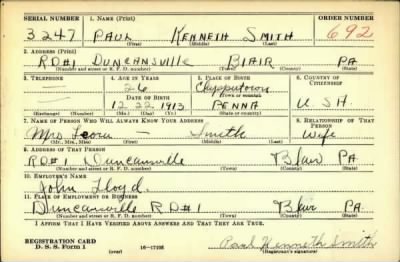 SERIAL NUMBER 1. NAME (Print) ORDER NUMBER
3247 PAUL KENNETH SMITH 692
(First) (Middle) (Last)
2. ADDRESS (Print)
RD#1 DUNCANSVILLE BLAIR PA
(Number and street or R. F. D. number) (Town) (County) (State)
3. TELEPHONE 4. AGE IN YEARS 5. PLACE OF BIRTH 6. COUNTRY OF CITIZENSHIP
— 26
DATE OF BIRTH (Town or county)
— 12 22 1913 PENNA U.S.A.
(Exchange) (Number) (Mo.) (Day) (Yr.) (State or country)
7. NAME OF PERSON WHO WILL ALWAYS KNOW YOUR ADDRESS 8. RELATIONSHIP OF THAT PERSON
Mrs — Smith Wife
(Mr., Mrs., Miss) (First) (Middle) (Last)
9. ADDRESS OF THAT PERSON
RD#1 Duncansville Blair PA.
(Number and street or R. F. D. number) (Town) (County) (State)
10. EMPLOYER'S NAME
John Lloyd.
11. PLACE OF EMPLOYMENT OR BUSINESS
Duncansville RD#1 Blair PA.
(Number and street or R. F. D. number) (Town) (County) (State)
I AFFIRM THAT I HAVE VERIFIED ABOVE ANSWERS AND THAT THEY ARE TRUE.
REGISTRATION CARD
D. S. S. Form 1 (over) 16—17105 Paul Kenneth Smith
(Registrant's signature)